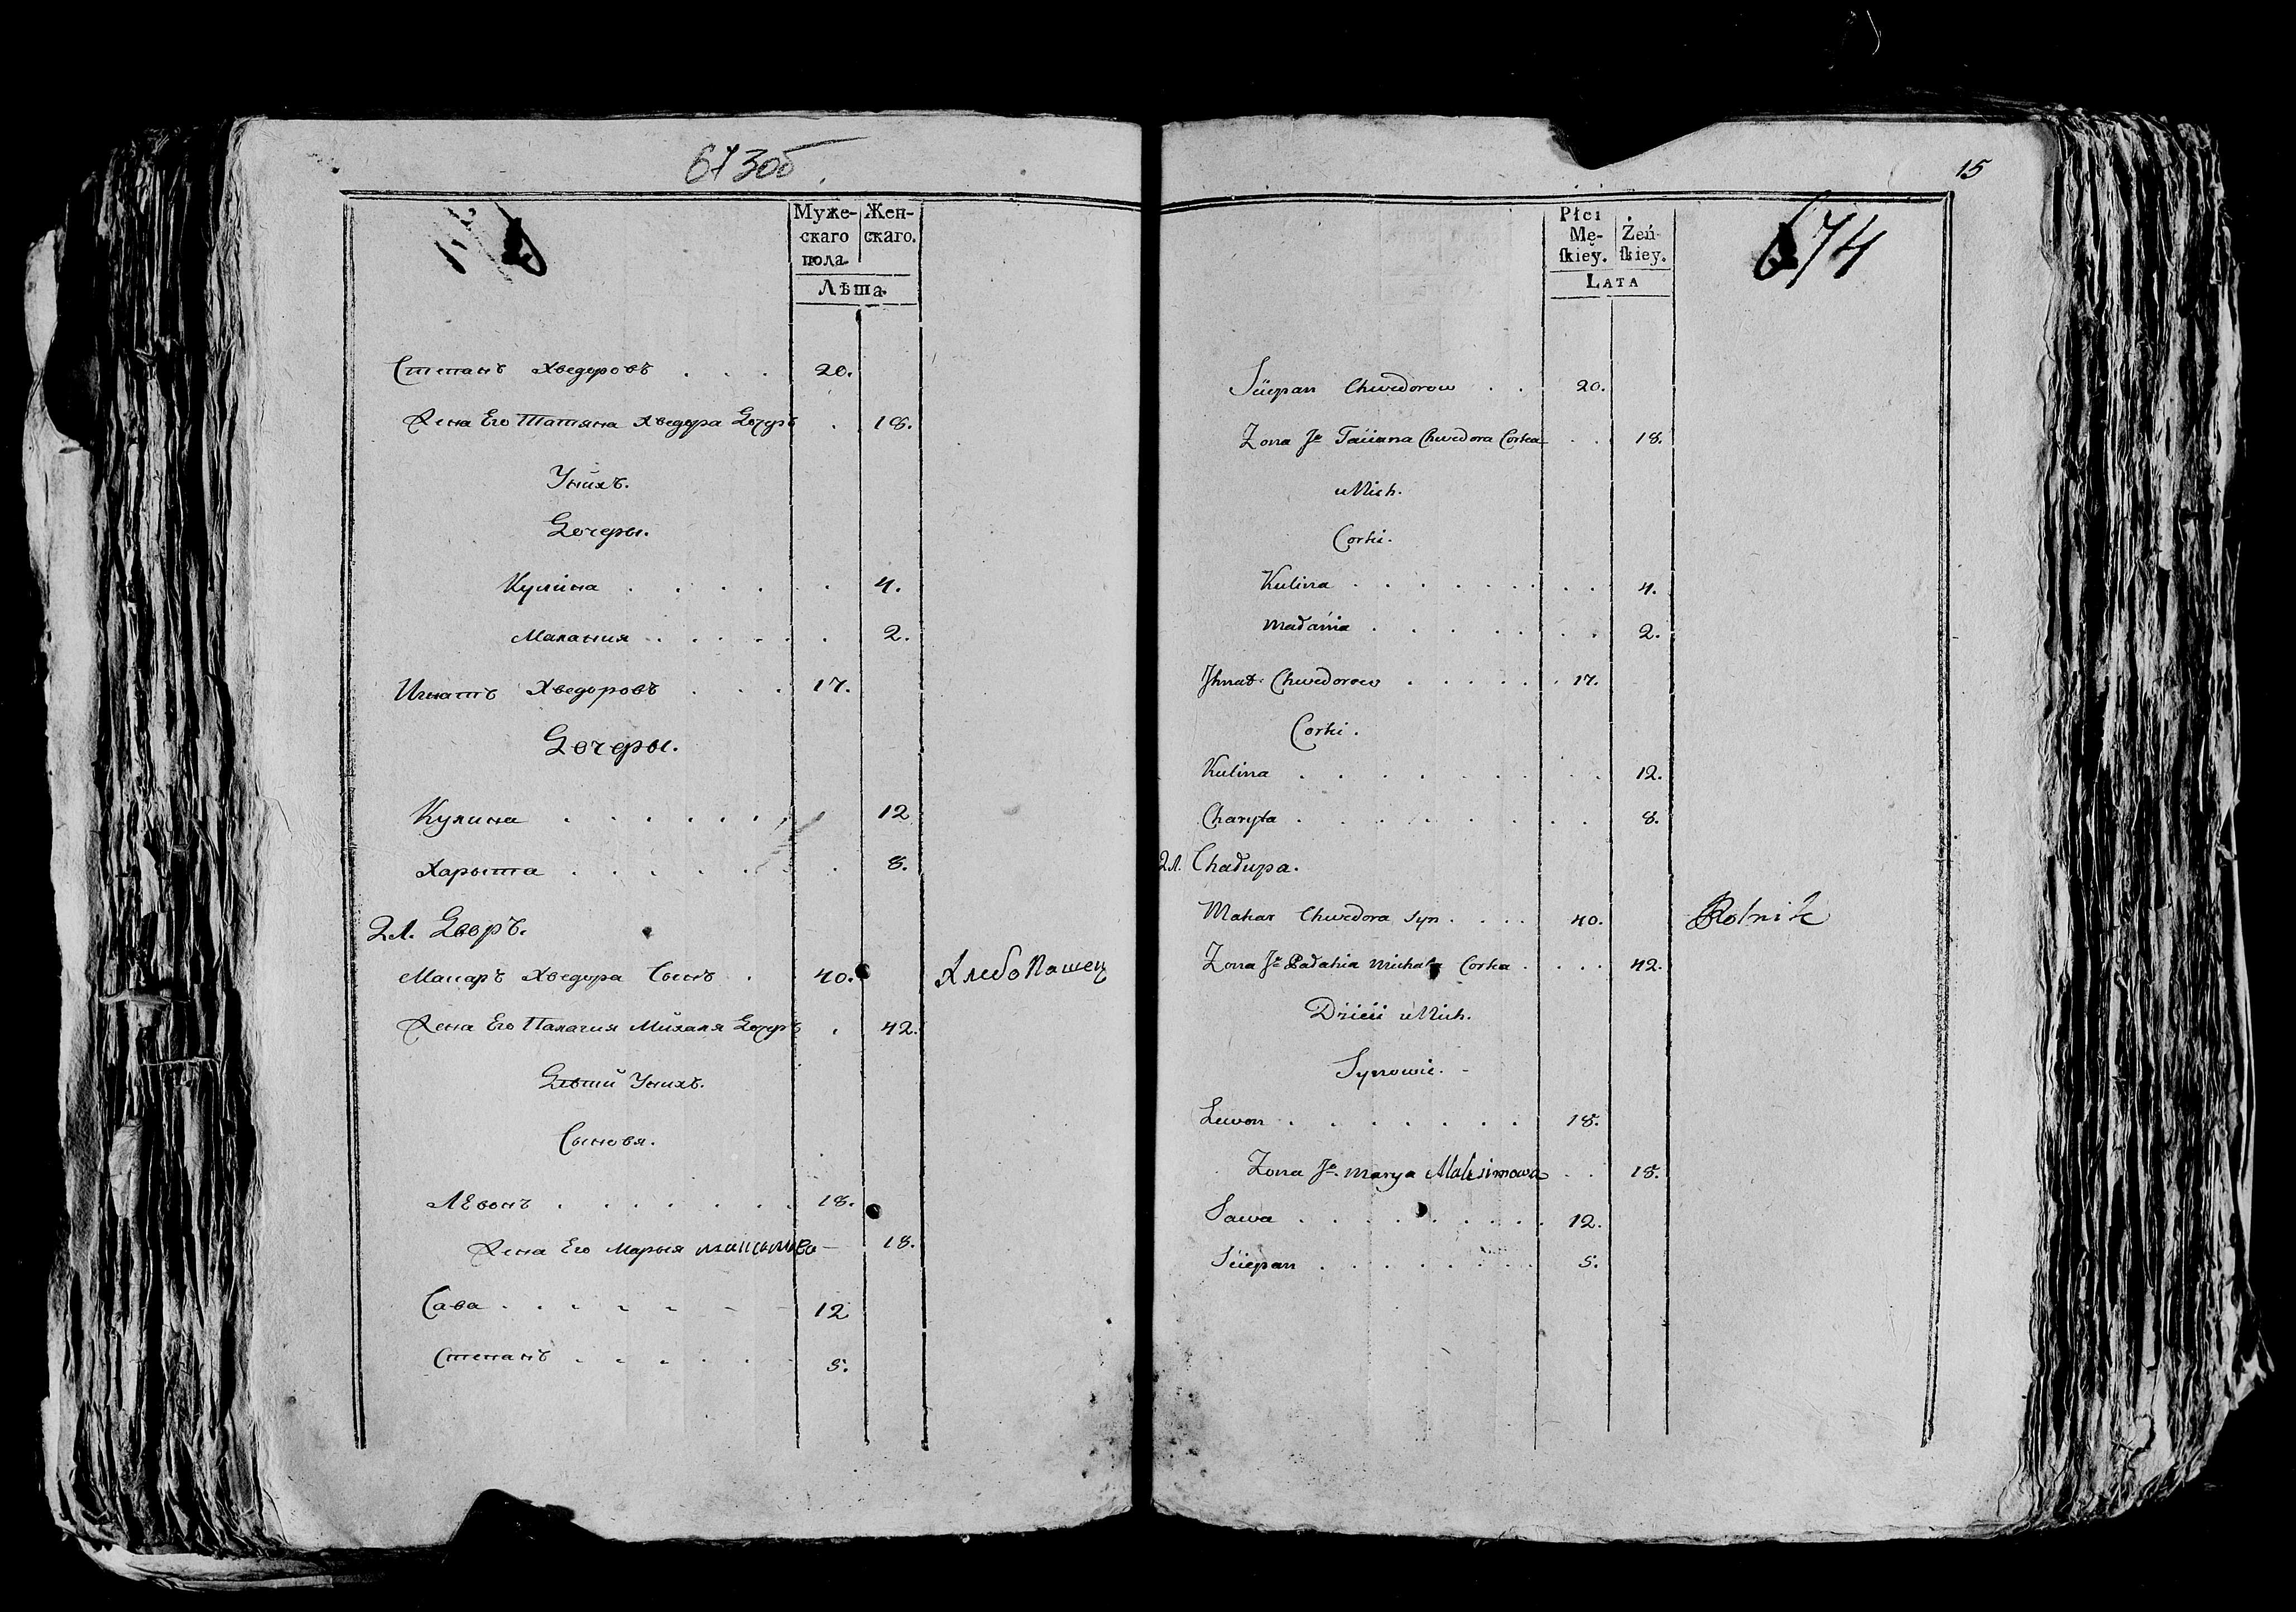 673об.
Муже- Жен-
скаго скаго.
пола
Лѣта.
Степанъ Хведоровъ . . . 20.
Жена Его Татяна Хведора Дочеръ . 18.
Унихъ.
Дочеры.
Кулина . . . . . 4.
Малания . . . . . 2.
Игнатъ Хведоровъ . . . 17.
Дочеры.
Кулина . . . . . . 12
Харыта . . . . . . 8.
2Л. Дворъ.
Макаръ Хведора Сынъ . 40. Хлебопашец
Жена Его Палагия Михаля Дочеръ . 42.
Дѣти Унихъ.
Сыновя.
Лѣвонъ . . . . . . 18.
Жена Его Марыя максымова 18.
Сава . . . . . . 12
Степанъ . . . . . 5.
15
674
Płci
Mę- Żeń-
ſkiey. ſkiey.
Lata
Sciepan Chwedorow . . 20.
Zona Jº Taciana Chwedora Corka . . 18.
u Nich.
Corki.
Kulina . . . . . . . 4.
Małania . . . . . . . 2.
Jhnat Chwedorow . . . . . 17.
Corki.
Kulina . . . . . . . 12.
Charyta . . . . . . . 8.
2Л. Chałupa.
Makar Chwedora Syn . . . . 40. Rolnik
Zona Jº Pałahia Michała Corka . . . . 42.
Dzieci u Nich.
Synowie.
Lewon . . . . . . . 18.
Zona Jº Marya Maksimowa . . 18.
Sawa . . . . . . . 12.
Sciepan . . . . . . . 5.